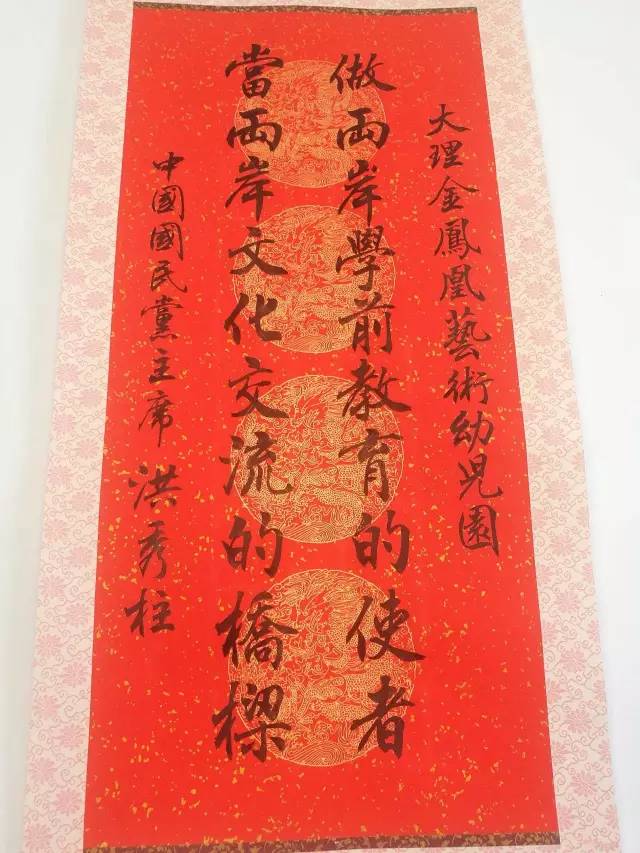 大理金鳳凰藝術幼兒園
做兩岸學前教育的使者
當兩岸文化交流的橋樑
中國國民黨主席 洪秀柱